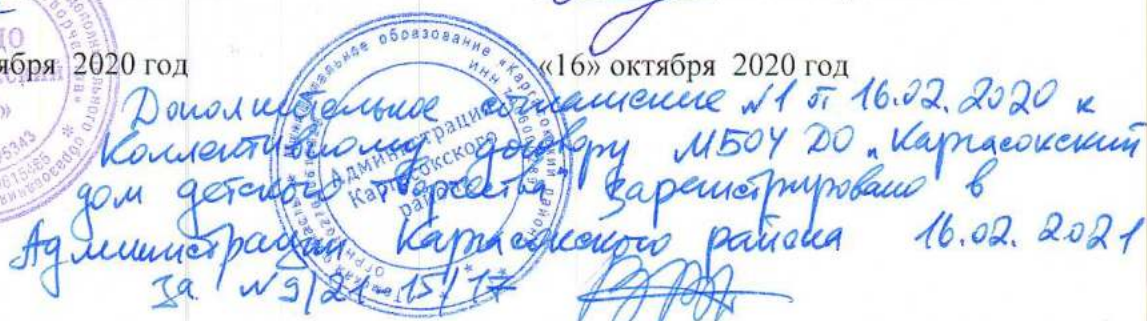 ября 2020 год «16» октября 2020 год
Дополнительное соглашение №1 от 16.02.2020 к
Коллективному договору МБОУ ДО „Каргасокский
дом детского творчества" зарегистрировано в
Администрации Каргасокского района 16.02.2021
за №9/21-15/17
образование «Каргасокский район»
Администрация
Каргасокского
района